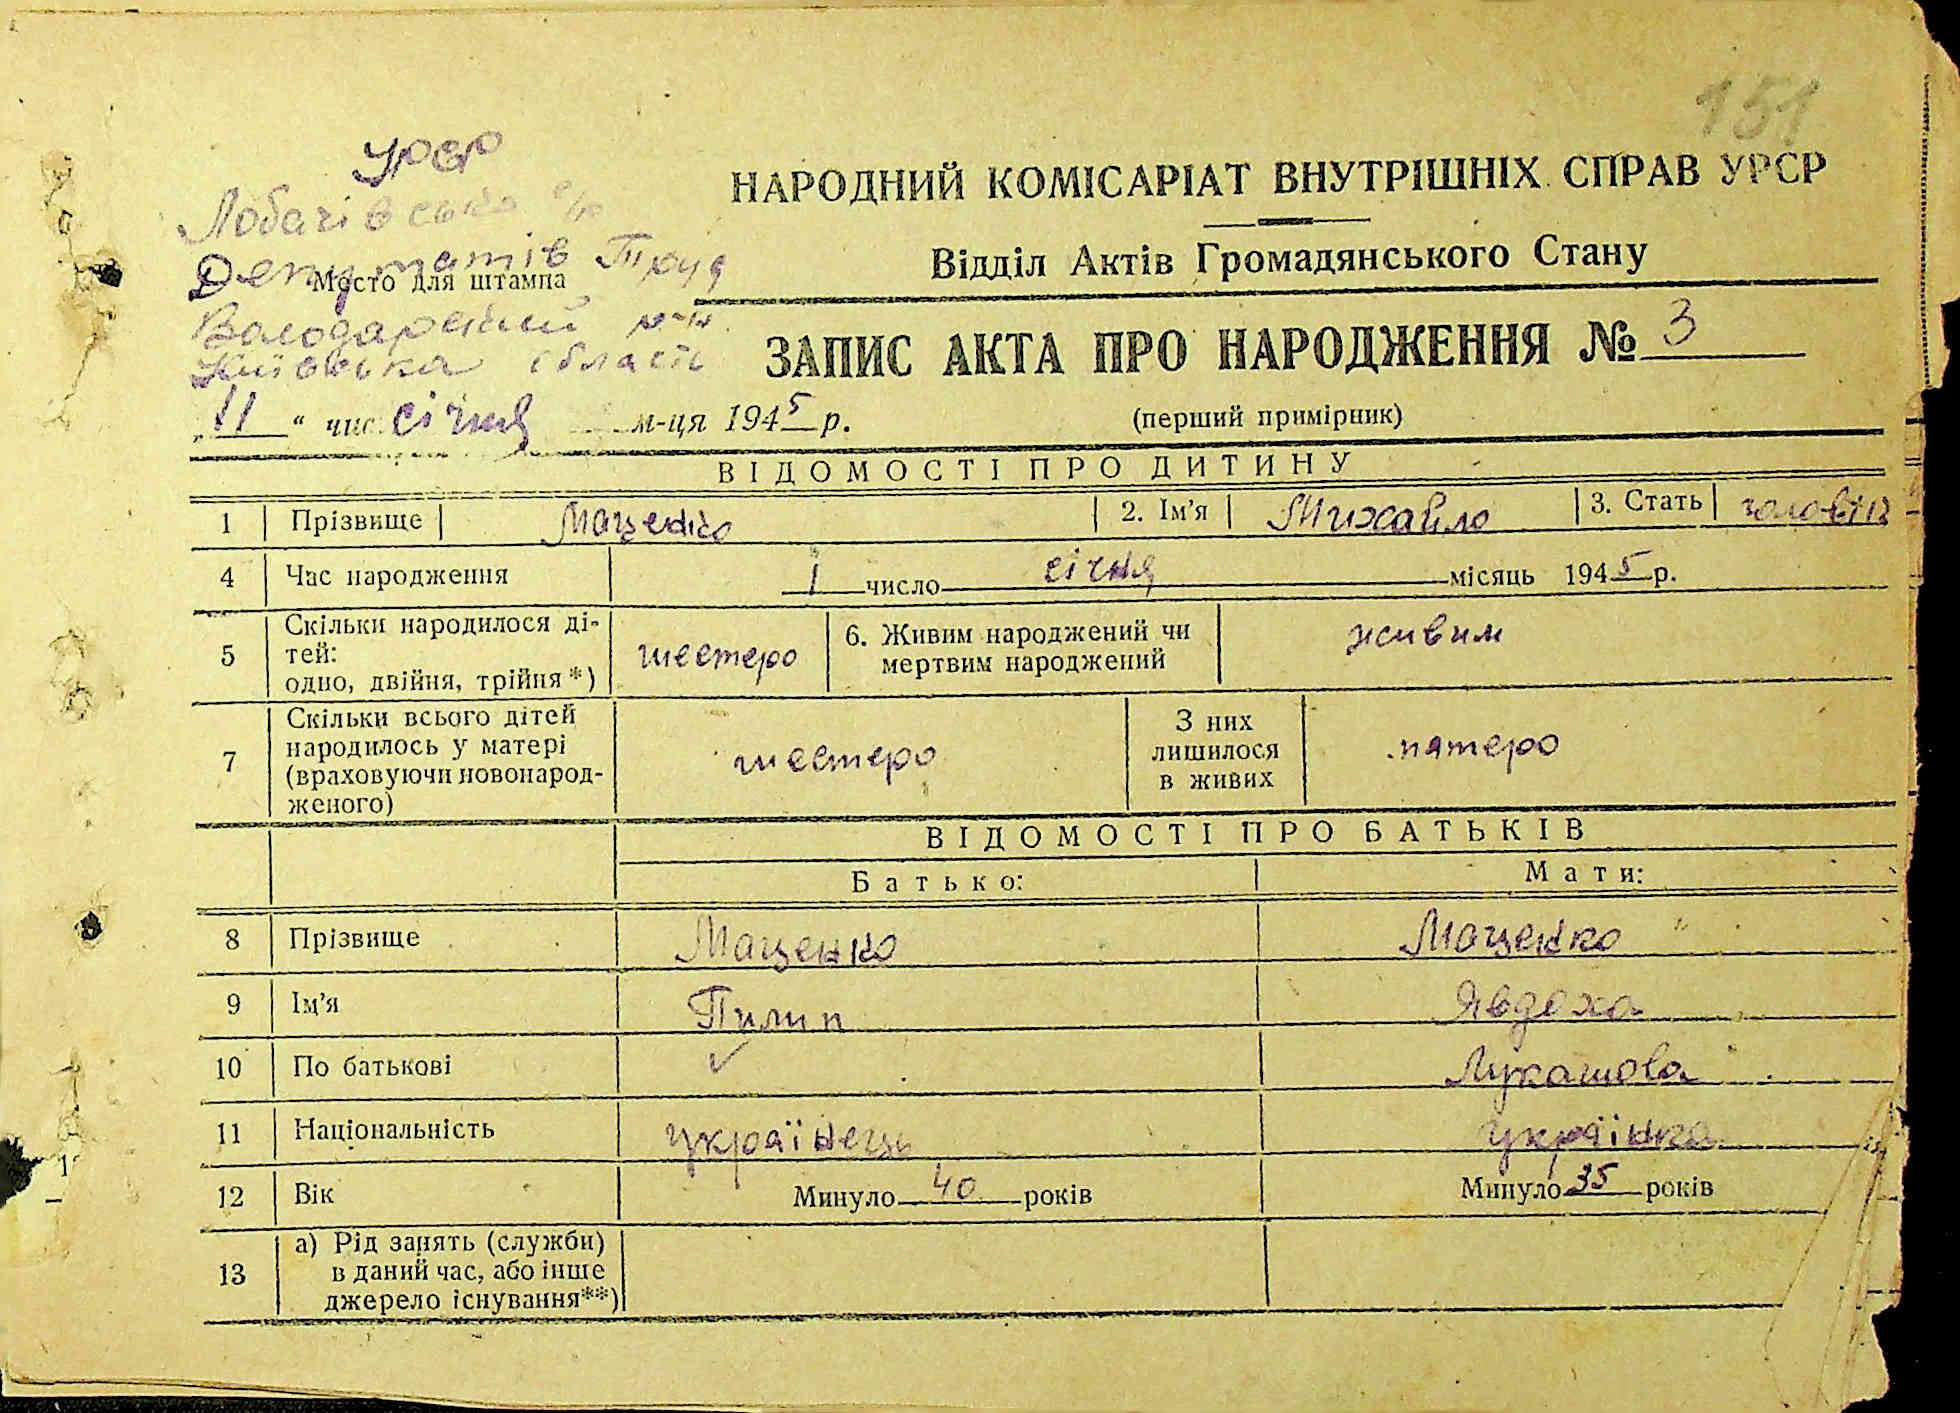 151
УРСР
Лобачівська с/р
Депутатів Труд
Место для штампа
Володарський р-н
Київська область
НАРОДНИЙ КОМІСАРІАТ ВНУТРІШНІХ СПРАВ УРСР
Відділ Актів Громадянського Стану
ЗАПИС АКТА ПРО НАРОДЖЕННЯ № 3
„11“ чис. січня м-ця 1945 р.
(перший примірник)
ВІДОМОСТІ ПРО ДИТИНУ
1 Прізвище Маценко 2. Ім'я Михайло 3. Стать
4 Час народження 1 число січня місяць 1945 р.
5 Скільки народилося ді-
тей:
одно, двійня, трійня*) шестеро 6. Живим народжений чи
мертвим народжений живим
7 Скільки всього дітей
народилось у матері
(враховуючи новонарод-
женого) шестеро З них
лишилося
в живих пятеро
ВІДОМОСТІ ПРО БАТЬКІВ
Батько: Мати:
8 Прізвище Маценко Маценко
9 Ім'я Пилип Явдоха
10 По батькові Лукашова
11 Національність українець українка
12 Вік Минуло 40 років Минуло 35 років
13 а) Рід занять (служби)
в даний час, або інше
джерело існування**)